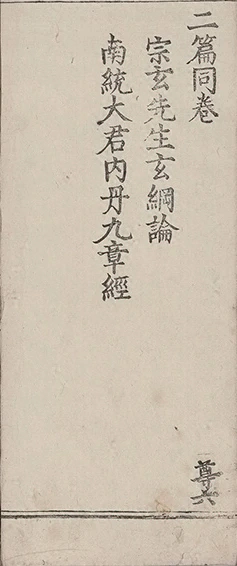 二篇同卷
宗玄先生玄綱論
南統大君内丹九章經
尊六